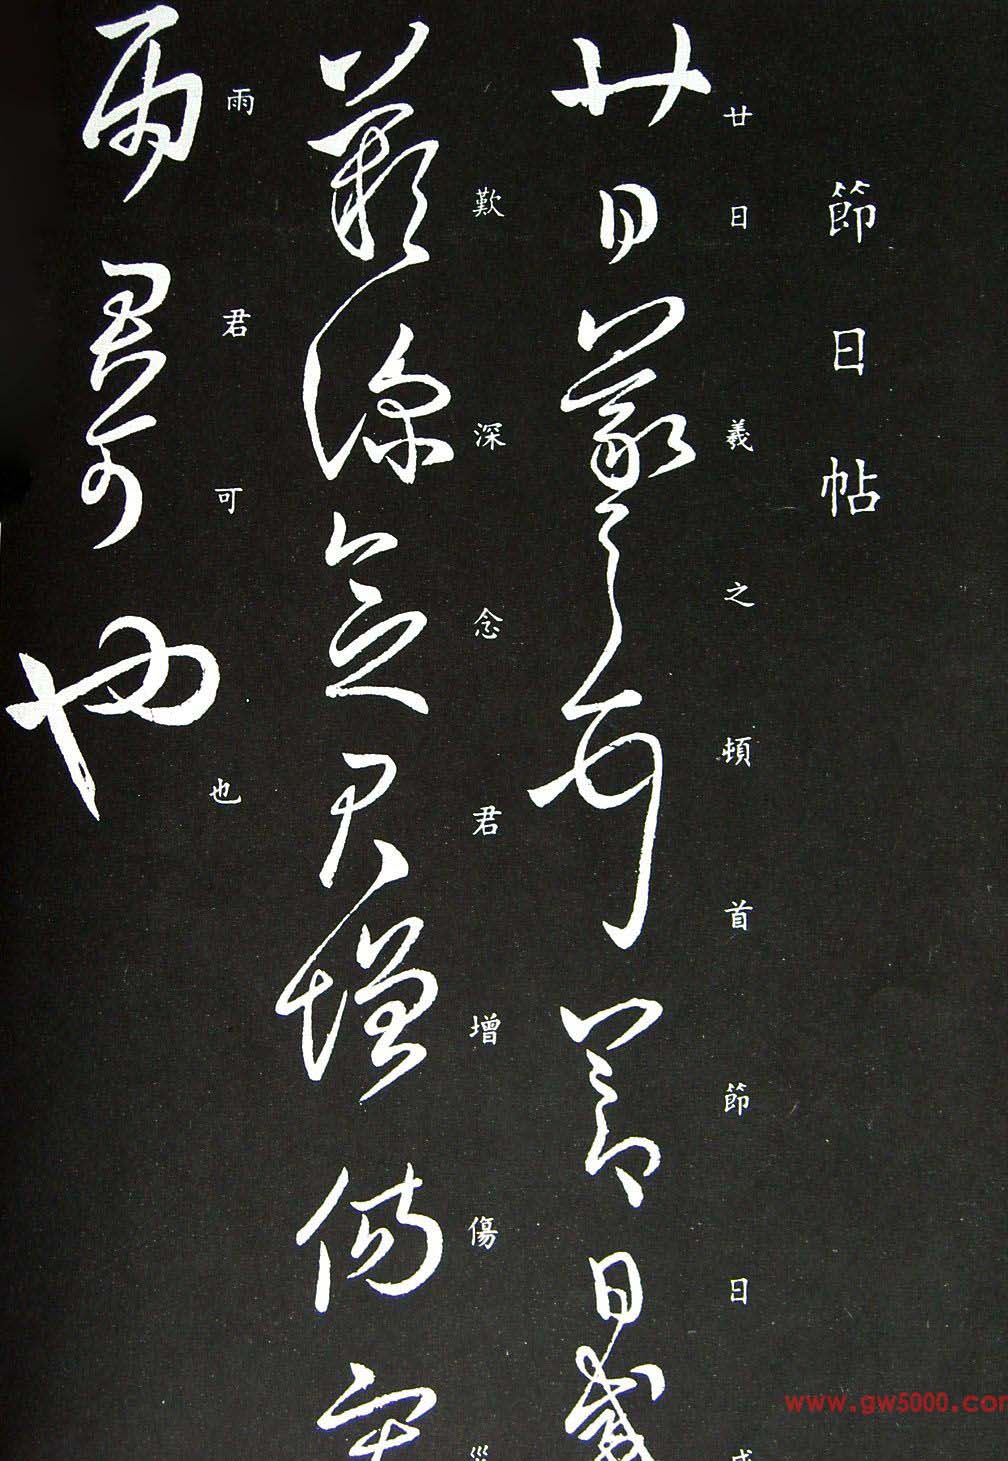 節日帖
廿日羲之頓首節日
廿日羲之頓首節日感
歎深念君增傷
歎深念君增傷
雨君可也
雨君可也
www.gw5000.com